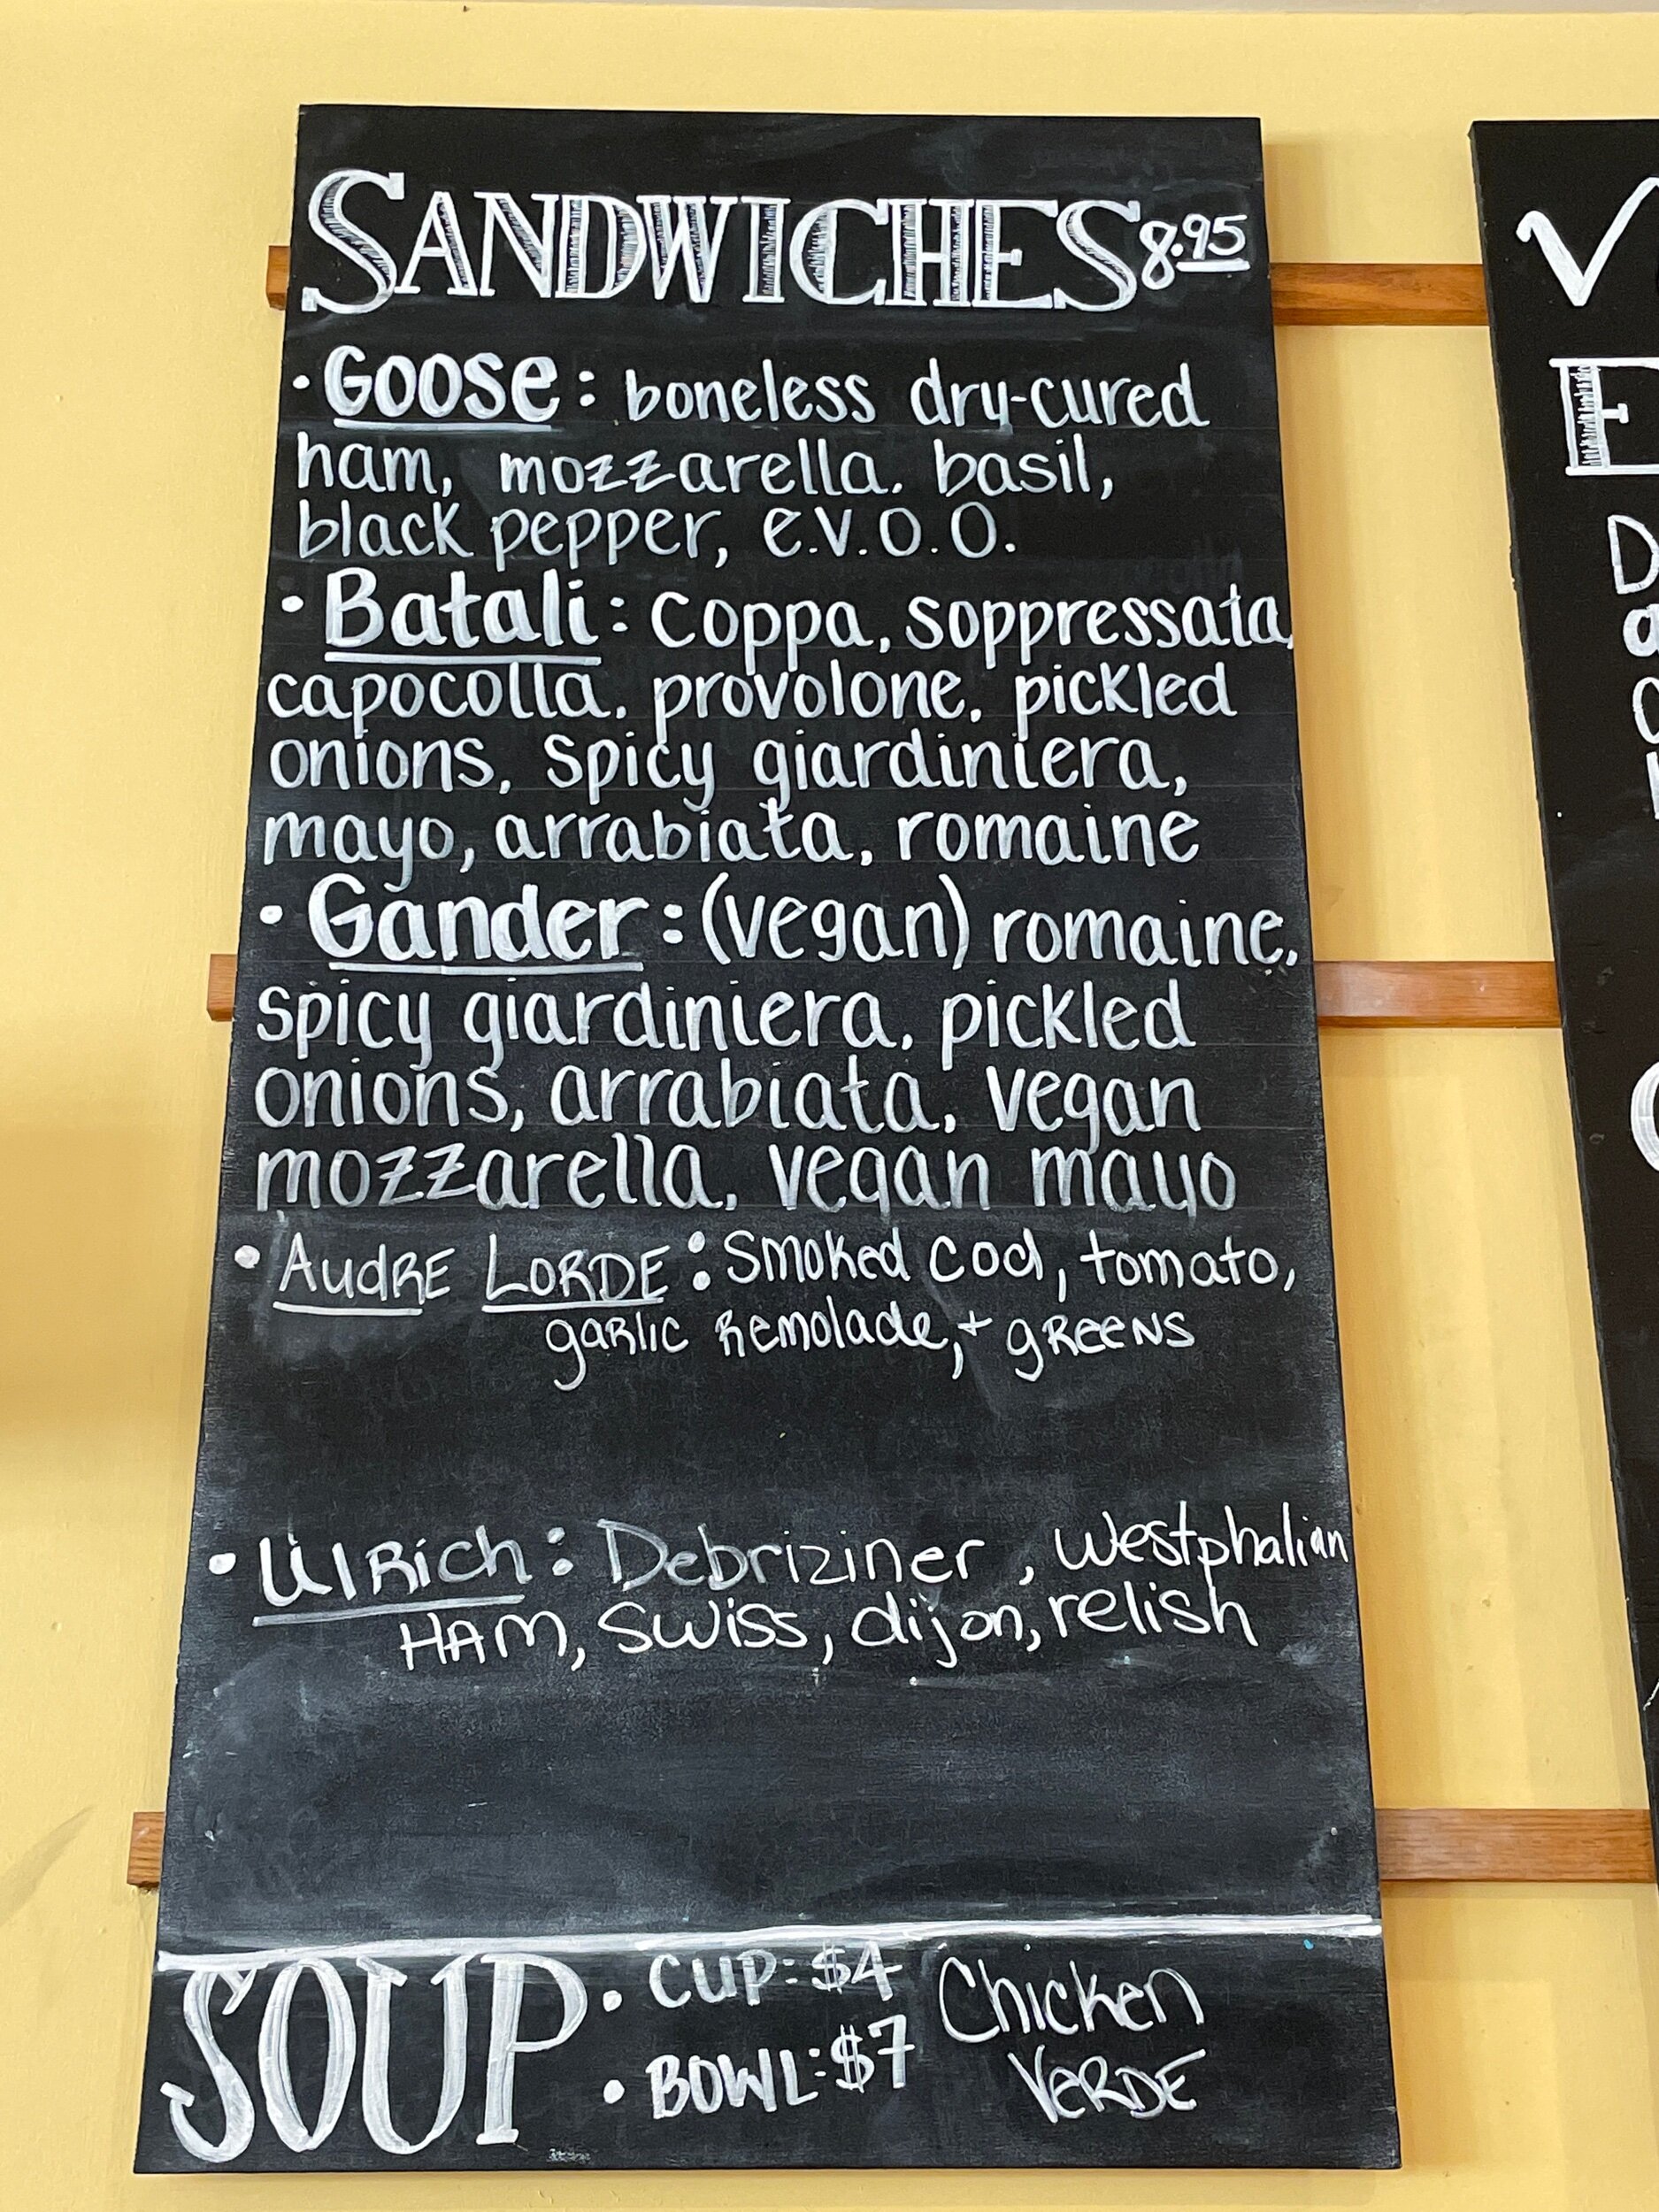 SANDWICHES 8.95
• Goose: boneless dry-cured
ham, mozzarella, basil,
black pepper, e.v.o.o.
• Batali: coppa, soppressata,
capocolla, provolone, pickled
onions, spicy giardiniera,
mayo, arrabiata, romaine
• Gander: (vegan) romaine,
spicy giardiniera, pickled
onions, arrabiata, vegan
mozzarella, vegan mayo
• AUDRE LORDE: Smoked cod, tomato,
garlic Remolade, + greens
• Ulrich: Debriziner, westphalian
HAM, Swiss, dijon, relish
SOUP • CUP: $4
• BOWL: $7
Chicken
VERDE